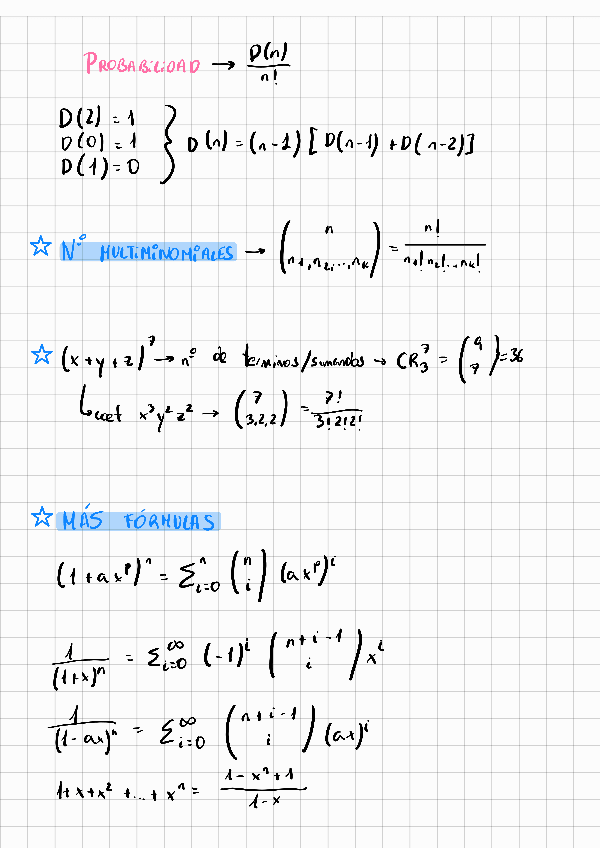 PROBABILIDAD → D(n)/n!
D(2) = 1
D(0) = 1
D(1) = 0
} D(n) = (n-1) [D(n-1) + D(n-2)]
☆ Nº MULTIMINOMIALES → (n / n1, n2, ..., nk) = n! / n1! n2! ... nk!
☆ (x+y+z)^7 → nº de terminos/sumandos → CR_3^7 = (9 / 7) = 36
↳ coef x³y²z² → (7 / 3,2,2) = 7! / 3!2!2!
☆ MÁS FÓRMULAS
(1+ax^p)^n = Σ_{i=0}^n (n / i) (ax^p)^i
1/(1+x)^n = Σ_{i=0}^∞ (-1)^i (n+i-1 / i) x^i
1/(1-ax)^n = Σ_{i=0}^∞ (n+i-1 / i) (ax)^i
1+x+x² + ... + x^n = (1-x^n+1) / (1-x)